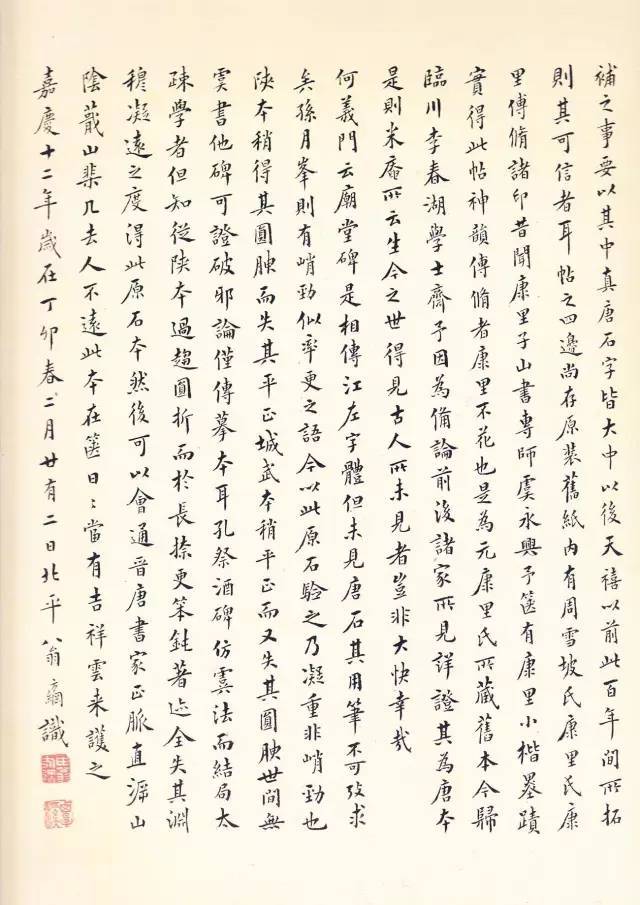 補之事要以其中真唐石字皆大中以後天禧以前此百年間所拓
則其可信者耳帖之四邊尚存原裝舊紙内有周雪坡氏康里氏康
里傅脩諸印昔聞康里子山書專師虞永興予篋有康里小楷墨蹟
實得此帖神韻傅脩者康里不花也是為元康里氏所藏舊本今歸
臨川李春湖學士齋予因為備論前後諸家所見詳證其為唐本
是則米庵所云生今之世得見古人所未見者豈非大快幸哉
何義門云廟堂碑是相傳江左字體但未見唐石其用筆不可攷求
矣孫月峯則有峭勁似率更之語今以此原石驗之乃凝重非峭勁也
陝本稍得其圓腴而失其平正城武本稍平正而又失其圓腴世間無
虞書他碑可證破邪論僅傳摹本耳孔祭酒碑仿虞法而結局太
疎學者但知從陝本過趨圓折而於長捺更笨鈍著迹全失其淵
穆凝遠之度得此原石本然後可以會通晉唐書家正脈直泝山
陰蕺山棐几去人不遠此本在篋日〻當有吉祥雲来護之
嘉慶十二年歲在丁卯春二月廿有二日北平翁方綱識